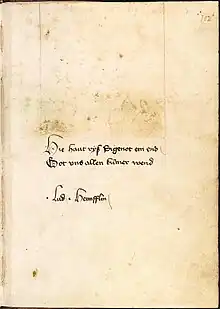 12
Hie haut ryß Sigenot ein end
Got vns allen kumer wend
· Lud · Hennfflin